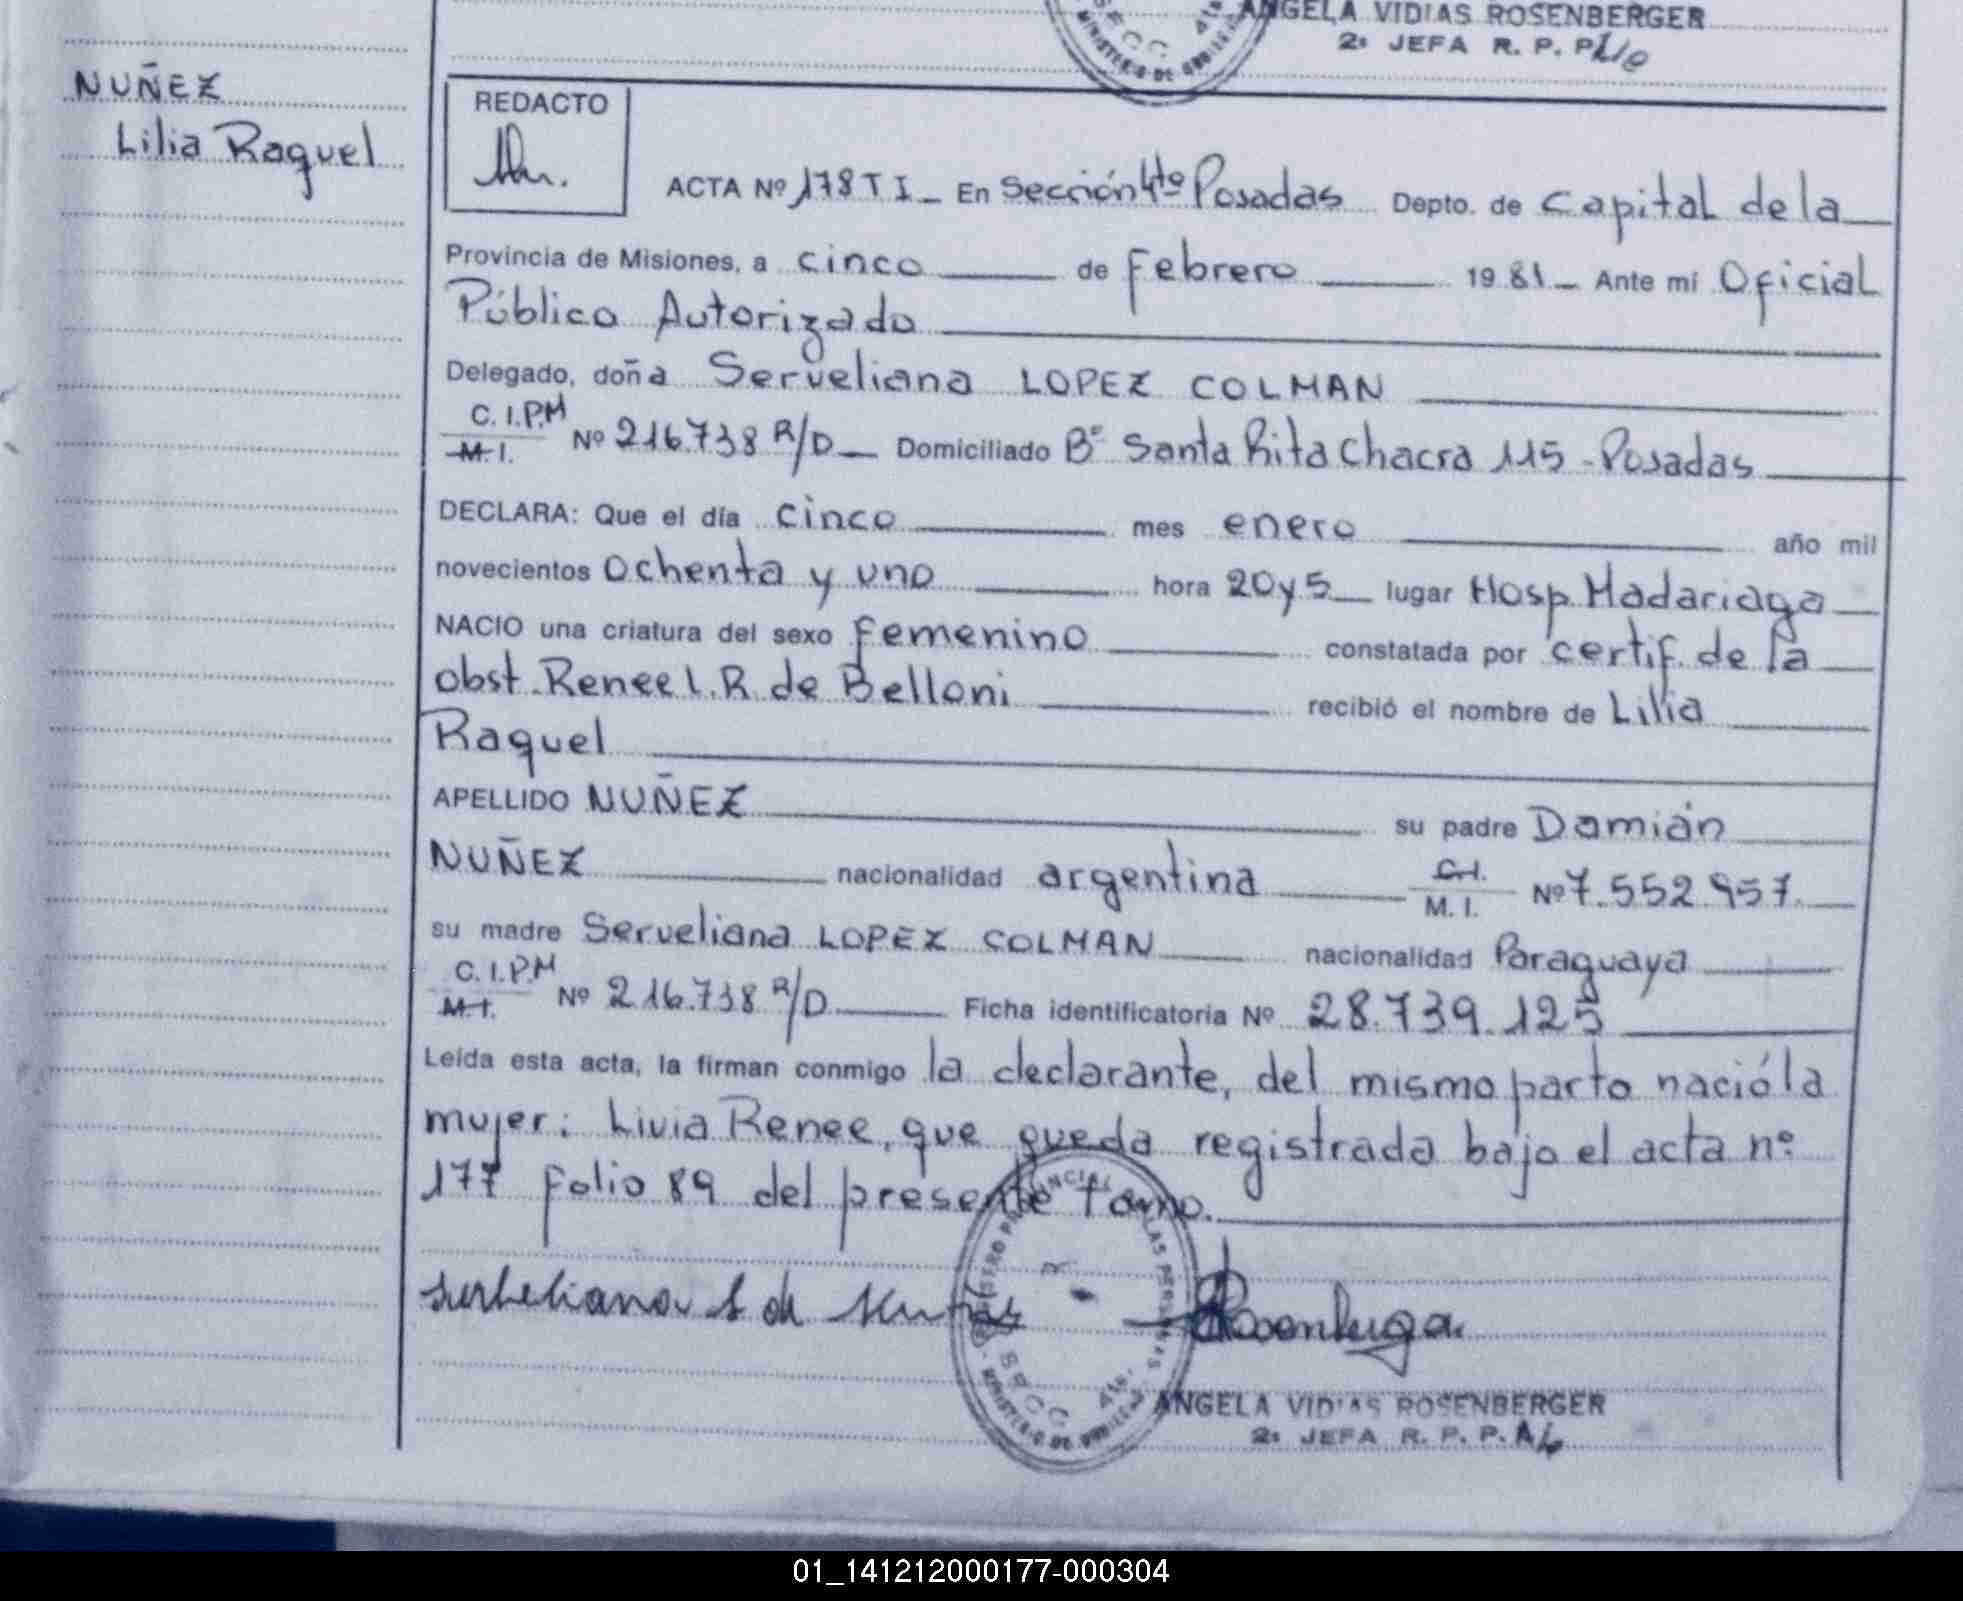 ANGELA VIDIAS ROSENBERGER
2: JEFA R. P. P.
NUÑEZ
Lilia Raquel
REDACTO
ACTA Nº 178 T I - En Sección 4to Posadas Depto. de Capital de la
Provincia de Misiones, a cinco de Febrero 1981 - Ante mí Oficial
Público Autorizado
Delegado, doña Serveliana LOPEZ COLMAN
C.I.P.M
M.I. Nº 216.738 R/D Domiciliado Bº Santa Rita Chacra 115 - Posadas
DECLARA: Que el día cinco mes enero año mil
novecientos ochenta y uno hora 20 y 5 lugar Hosp. Madariaga
NACIO una criatura del sexo femenino constatada por certif. de la
obst. Renee L. R. de Belloni recibió el nombre de Lilia
Raquel
APELLIDO NUÑEZ su padre Damián
NUÑEZ nacionalidad argentina C.I. M.I. Nº 7.552.957.
su madre Serveliana LOPEZ COLMAN nacionalidad Paraguaya
C.I.P.M
M.I. Nº 216.738 R/D Ficha identificatoria Nº 28.739.125
Leída esta acta, la firman conmigo la declarante, del mismo parto nació la
mujer: Livia Renee, que queda registrada bajo el acta nº
177 folio 89 del presente Tomo.
ANGELA VIDIAS ROSENBERGER
2: JEFA R. P. P.
01_141212000177-000304